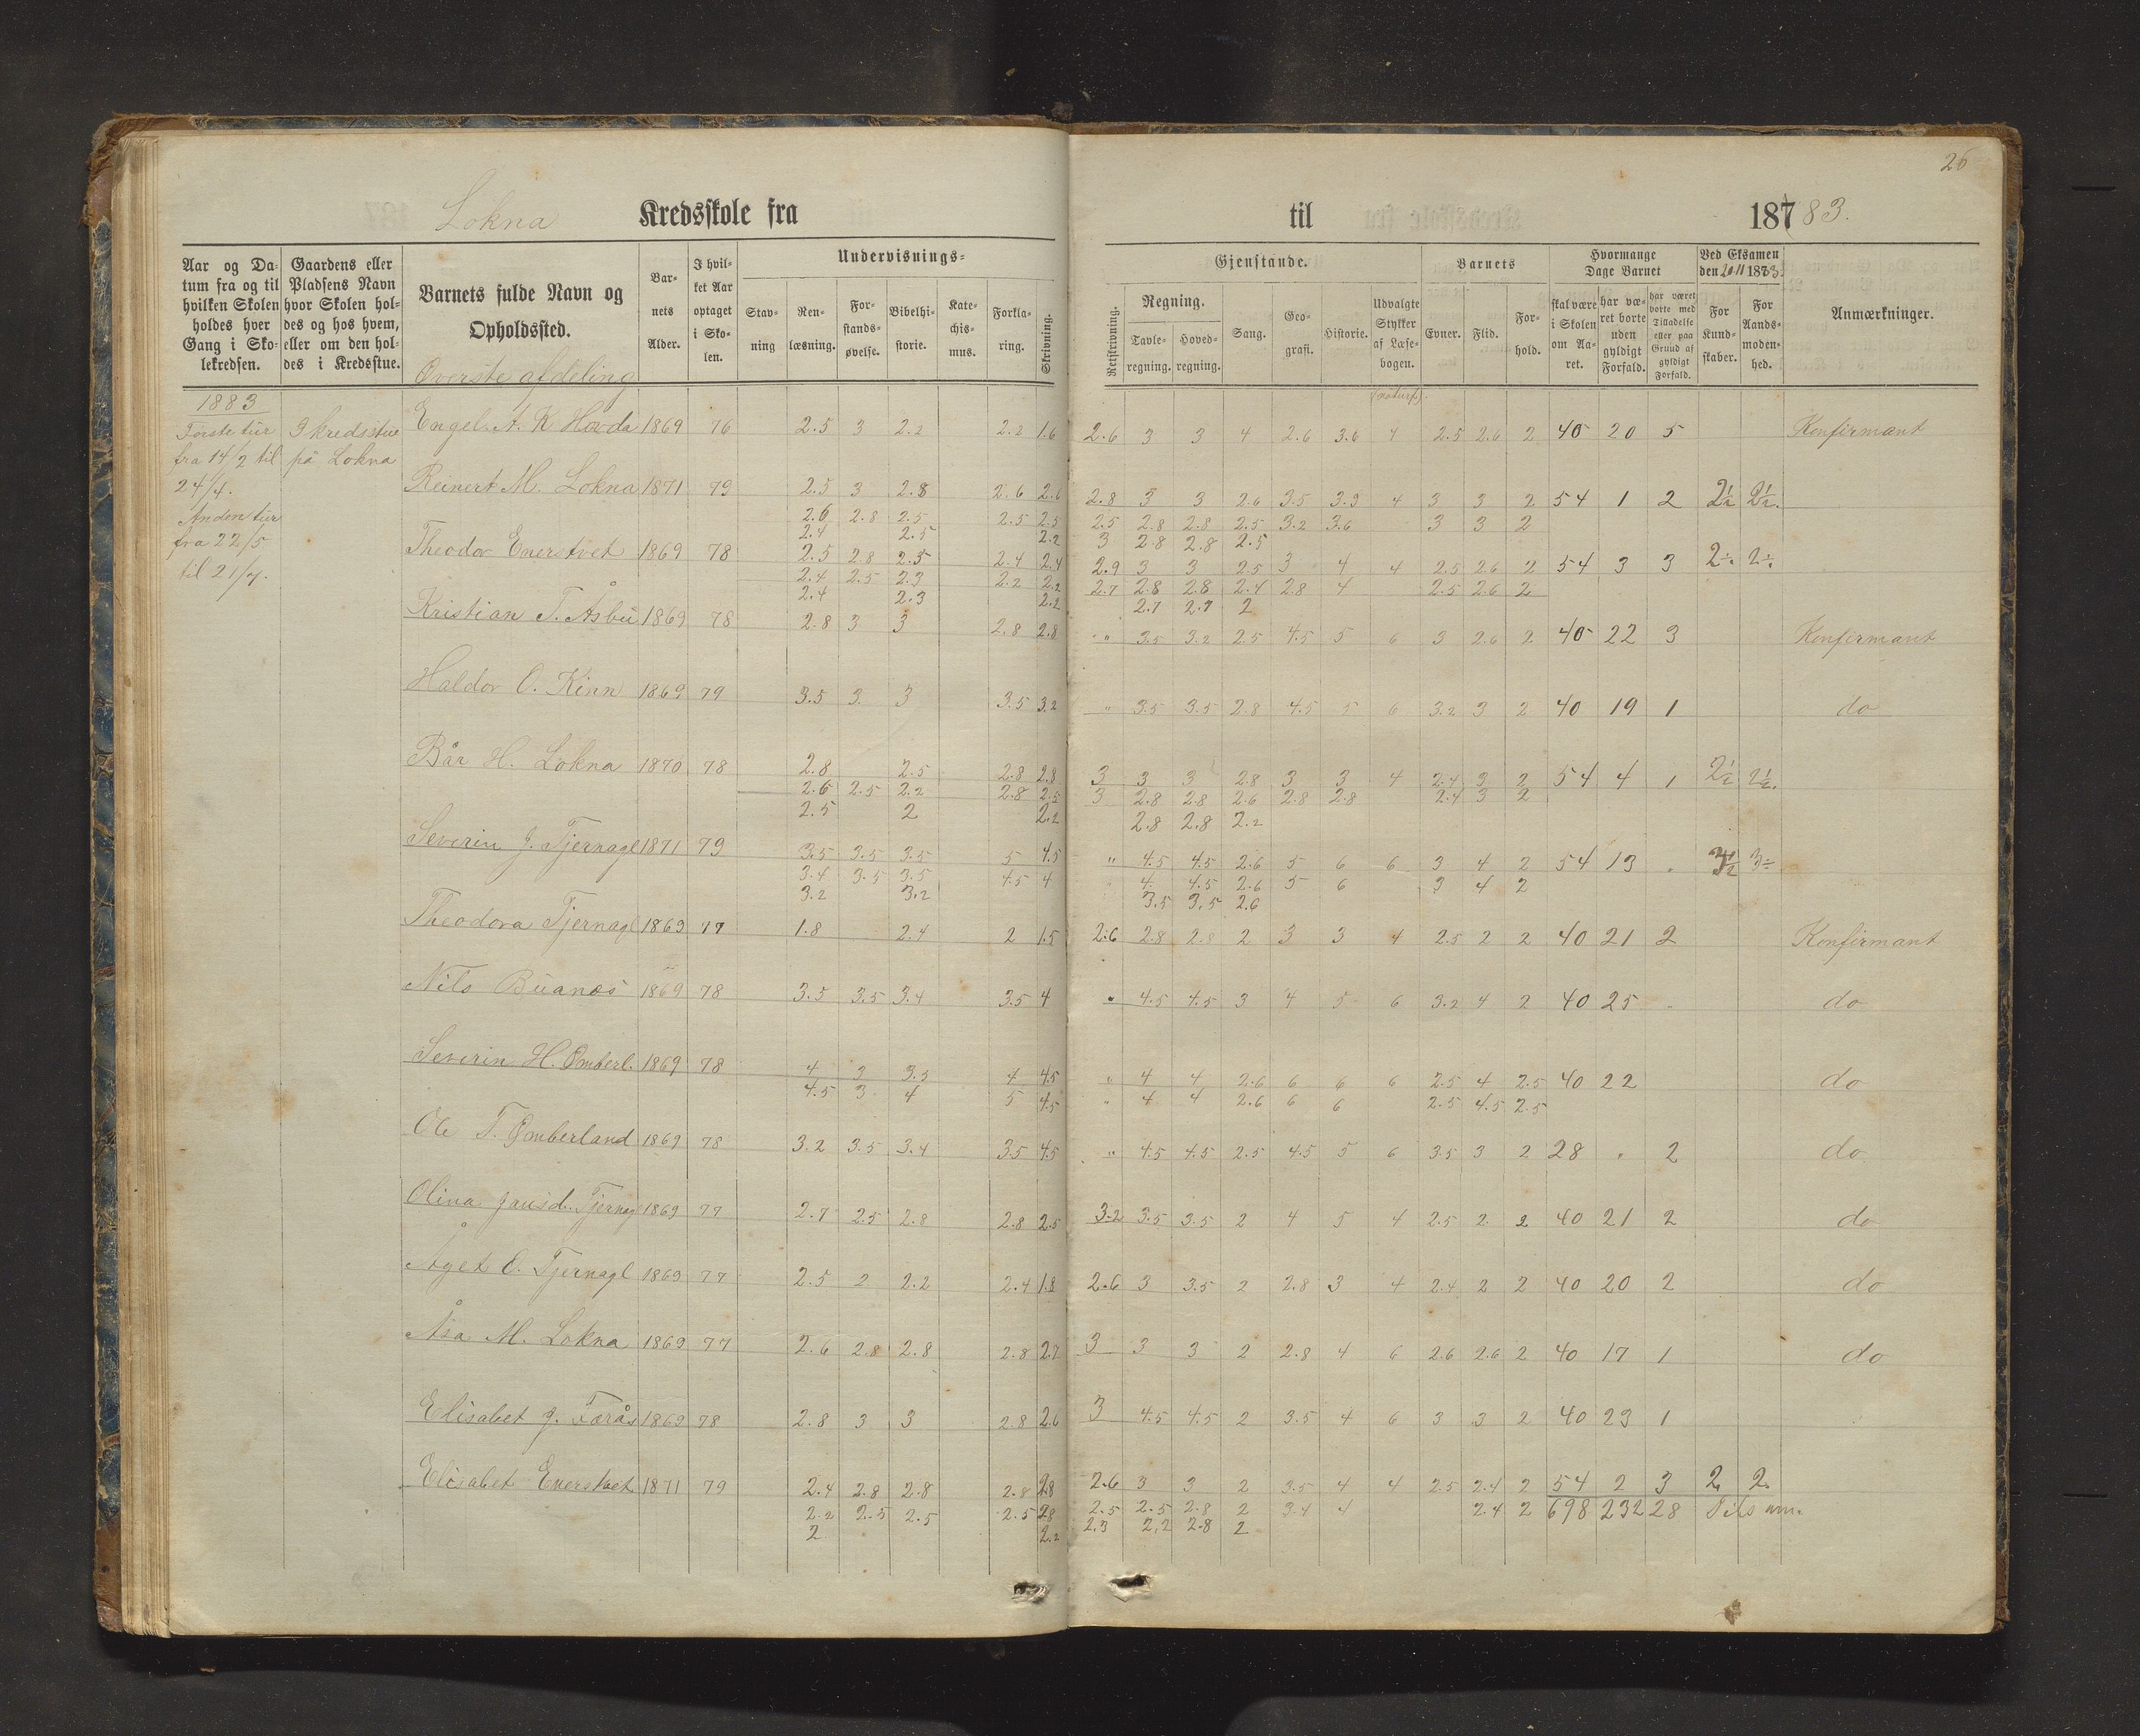 26
Lokna Kredsskole fra til 187 83.
Aar og Da-
tum fra og til
hvilken Skolen
holdes hver
Gang i Sko-
lekredsen.
Gaardens eller
Pladsens Navn
hvor Skolen hol-
des og hos hvem,
eller om den hol-
des i Kredsstue.
Barnets fulde Navn og
Opholdssted.
Bar-
nets
Alder.
I hvil-
ket Aar
optaget
i Sko-
len.
Undervisnings-
Stav-
ning
Ren-
læsning.
For-
stands-
øvelse.
Bibelhi-
storie.
Kate-
chis-
mus.
Forkla-
ring.
Skrivning.
Gjenstande.
Retskrivning.
Regning.
Tavle-
regning.
Hoved-
regning.
Sang.
Geo-
grafi.
Historie.
Udvalgte
Stykker
af Læse-
bogen.
Barnets
Evner.
Flid.
For-
hold.
Hvormange
Dage Barnet
skal være
i Skolen
om Aa-
ret.
har væ-
ret borte
uden
gyldigt
Forfald.
har været
borte med
Tilladelse
eller paa
Grund af
gyldigt
Forfald.
Ved Eksamen
den 20 11 1883.
For
Kund-
skaber.
For
Aands-
moden-
hed.
Anmærkninger.
Øverste afdeling
(naturf.)
1883
Første tür
fra 14/2 til
24/4.
Anden tür
fra 22/5
til 21/7.
I kredsstue
på Lokna
Engel A. K Hovda 1869 76 2.5 3 2.2 2.2 1.6 2.6 3 3 4 2.6 3.6 4 2.5 2.6 2 40 20 5 Konfirmant
Reinert M. Lokna 1871 79 2.5 3 2.8 2.6 2.6 2.8 3 3 2.6 3.5 3.3 4 3 3 2 54 1 2 2½ 2½.
2.6 2.8 2.5 2.5 2.5 2.5 2.8 2.8 2.5 3.2 3.6 3 3 2
2.4 2.5 2.2 3 2.8 2.8 2.5
Theodor Enerstvet 1869 78 2.5 2.8 2.5 2.4 2.4 2.9 3 3 2.5 3 4 4 2.5 2.6 2 54 3 3 2÷ 2÷
2.4 2.5 2.3 2.2 2.2 2.7 2.8 2.8 2.4 2.8 4 2.5 2.6 2
2.4 2.3 2.2 2.7 2.7 2
Kristian T. Åsbü 1869 78 2.8 3 3 2.8 2.8 " 3.5 3.2 2.5 4.5 5 6 3 2.6 2 40 22 3 Konfermant
Haldor O. Kinn 1869 79 3.5 3 3 3.5 3.2 " 3.5 3.5 2.8 4.5 5 6 3.2 3 2 40 19 1 do
Bår H. Lokna 1870 78 2.8 2.5 2.8 2.8 3 3 3 2.8 3 3 4 2.4 3 2 54 4 1 2½ 2½.
2.6 2.5 2.2 2.8 2.5 3 2.8 2.8 2.6 2.8 2.8 2.4 3 2
2.5 2 2.2 2.8 2.8 2.2
Severin J. Tjernagel 1871 79 3.5 3.5 3.5 5 4.5 " 4.5 4.5 2.6 5 6 6 3 4 2 54 13 . 3½ 3÷
3.4 3.5 3.5 4.5 4 " 4. 4.5 2.6 5 6 3 4 2
3.2 3.2 3.5 3.5 2.6
Theodora Tjernagl 1869 77 1.8 2.4 2 1.5 2.6 2.8 2.8 2 3 3 4 2.5 2 2 40 21 2 Konfirmant
Nils Büanes 1869 78 3.5 3.5 3.4 3.5 4 " 4.5 4.5 3 4 5 6 3.2 4 2 40 25 . do
Severin H. Omberl. 1869 78 4 3 3.5 4 4.5 " 4 4 2.6 6 6 6 2.5 4 2.5 40 22 do
4.5 3 4 5 4.5 " 4 4 2.6 6 6 2.5 4.5 2.5
Ole T. Omberland 1869 78 3.2 3.5 3.4 3.5 4.5 " 4.5 4.5 2.5 4.5 5 6 3.5 3 2 28 . 2 do
Olina Jansd. Tjernag 1869 77 2.7 2.5 2.8 2.8 2.5 3.2 3.5 3.5 2 4 5 4 2.5 2 2 40 21 2 do
Åget E. Tjernagl 1869 77 2.5 2 2.2 2.4 1.8 2.6 3 3.5 2 2.8 3 4 2.4 2 2 40 20 2 do
Åsa M. Lokna 1869 77 2.6 2.8 2.8 2.8 2.7 3 3 3 2 2.8 4 6 2.6 2.6 2 40 17 1 do
Elisabet J. Førås 1869 78 2.8 3 3 2.8 2.6 3 4.5 4.5 2 3.5 4 6 3 3 2 40 23 1
Elisabet Enerstvet 1871 79 2.4 2.8 2.8 2.8 2.8 2.6 3 3 2 3.5 4 4 2.5 2.4 2 54 2 3 2 2.
2.2 2.5 2.5 2.5 2.8 2.5 2.5 2.8 2 3.4 4 2.4 2 698 232 28 Tils am.
2 2.2 2.3 2.2 2.8 2